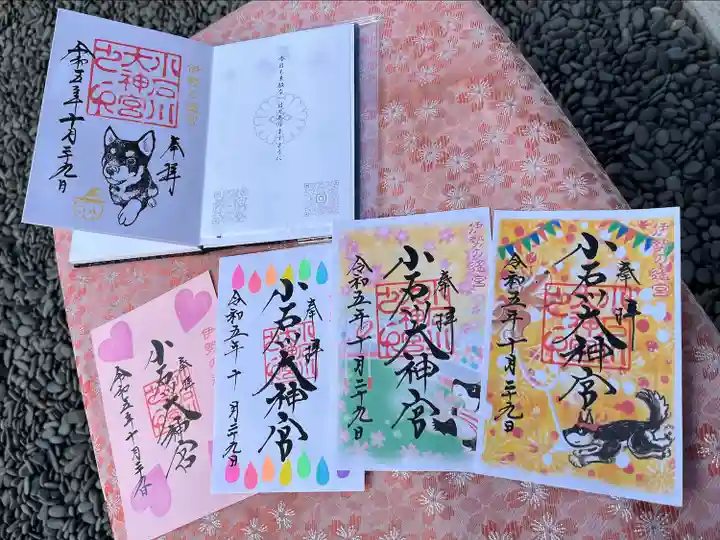 奉拝
小石川
大神宮
令和五年十月二十九日
奉拝
小石川大神宮
令和五年十月二十九日
奉拝
小石川大神宮
令和五年十月二十九日
伊勢の遙宮
奉拝
小石川大神宮
令和五年十月二十九日
伊勢の遙宮
奉拝
小石川大神宮
令和五年十月二十九日